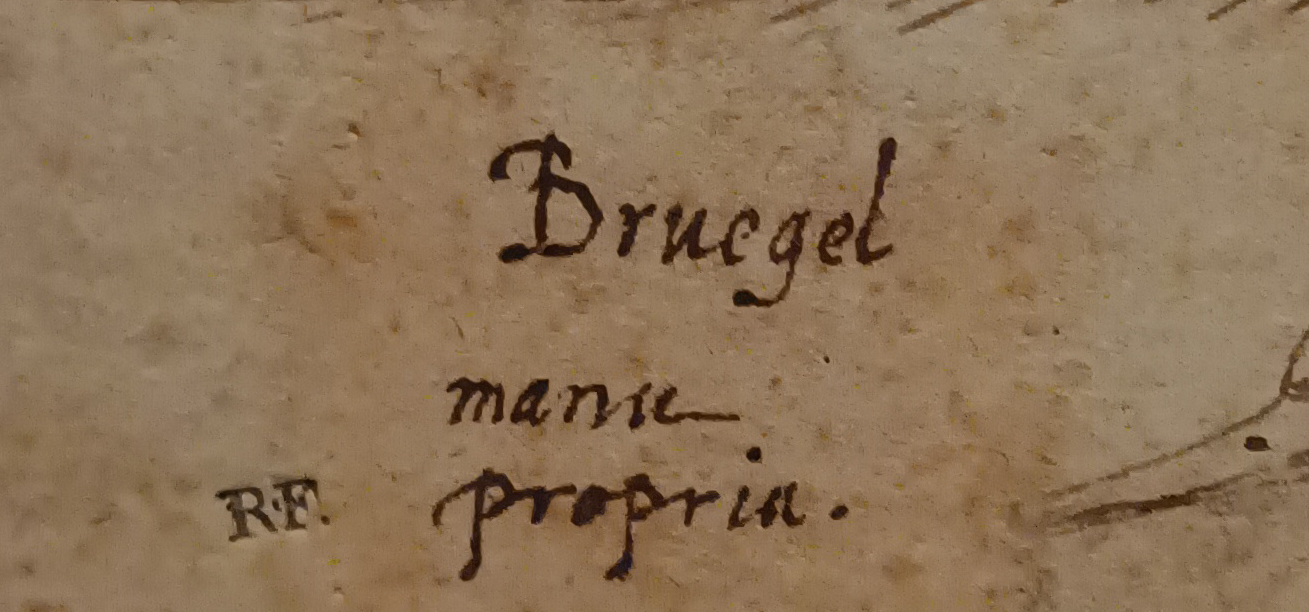 Bruegel
manu
R.F. propria.